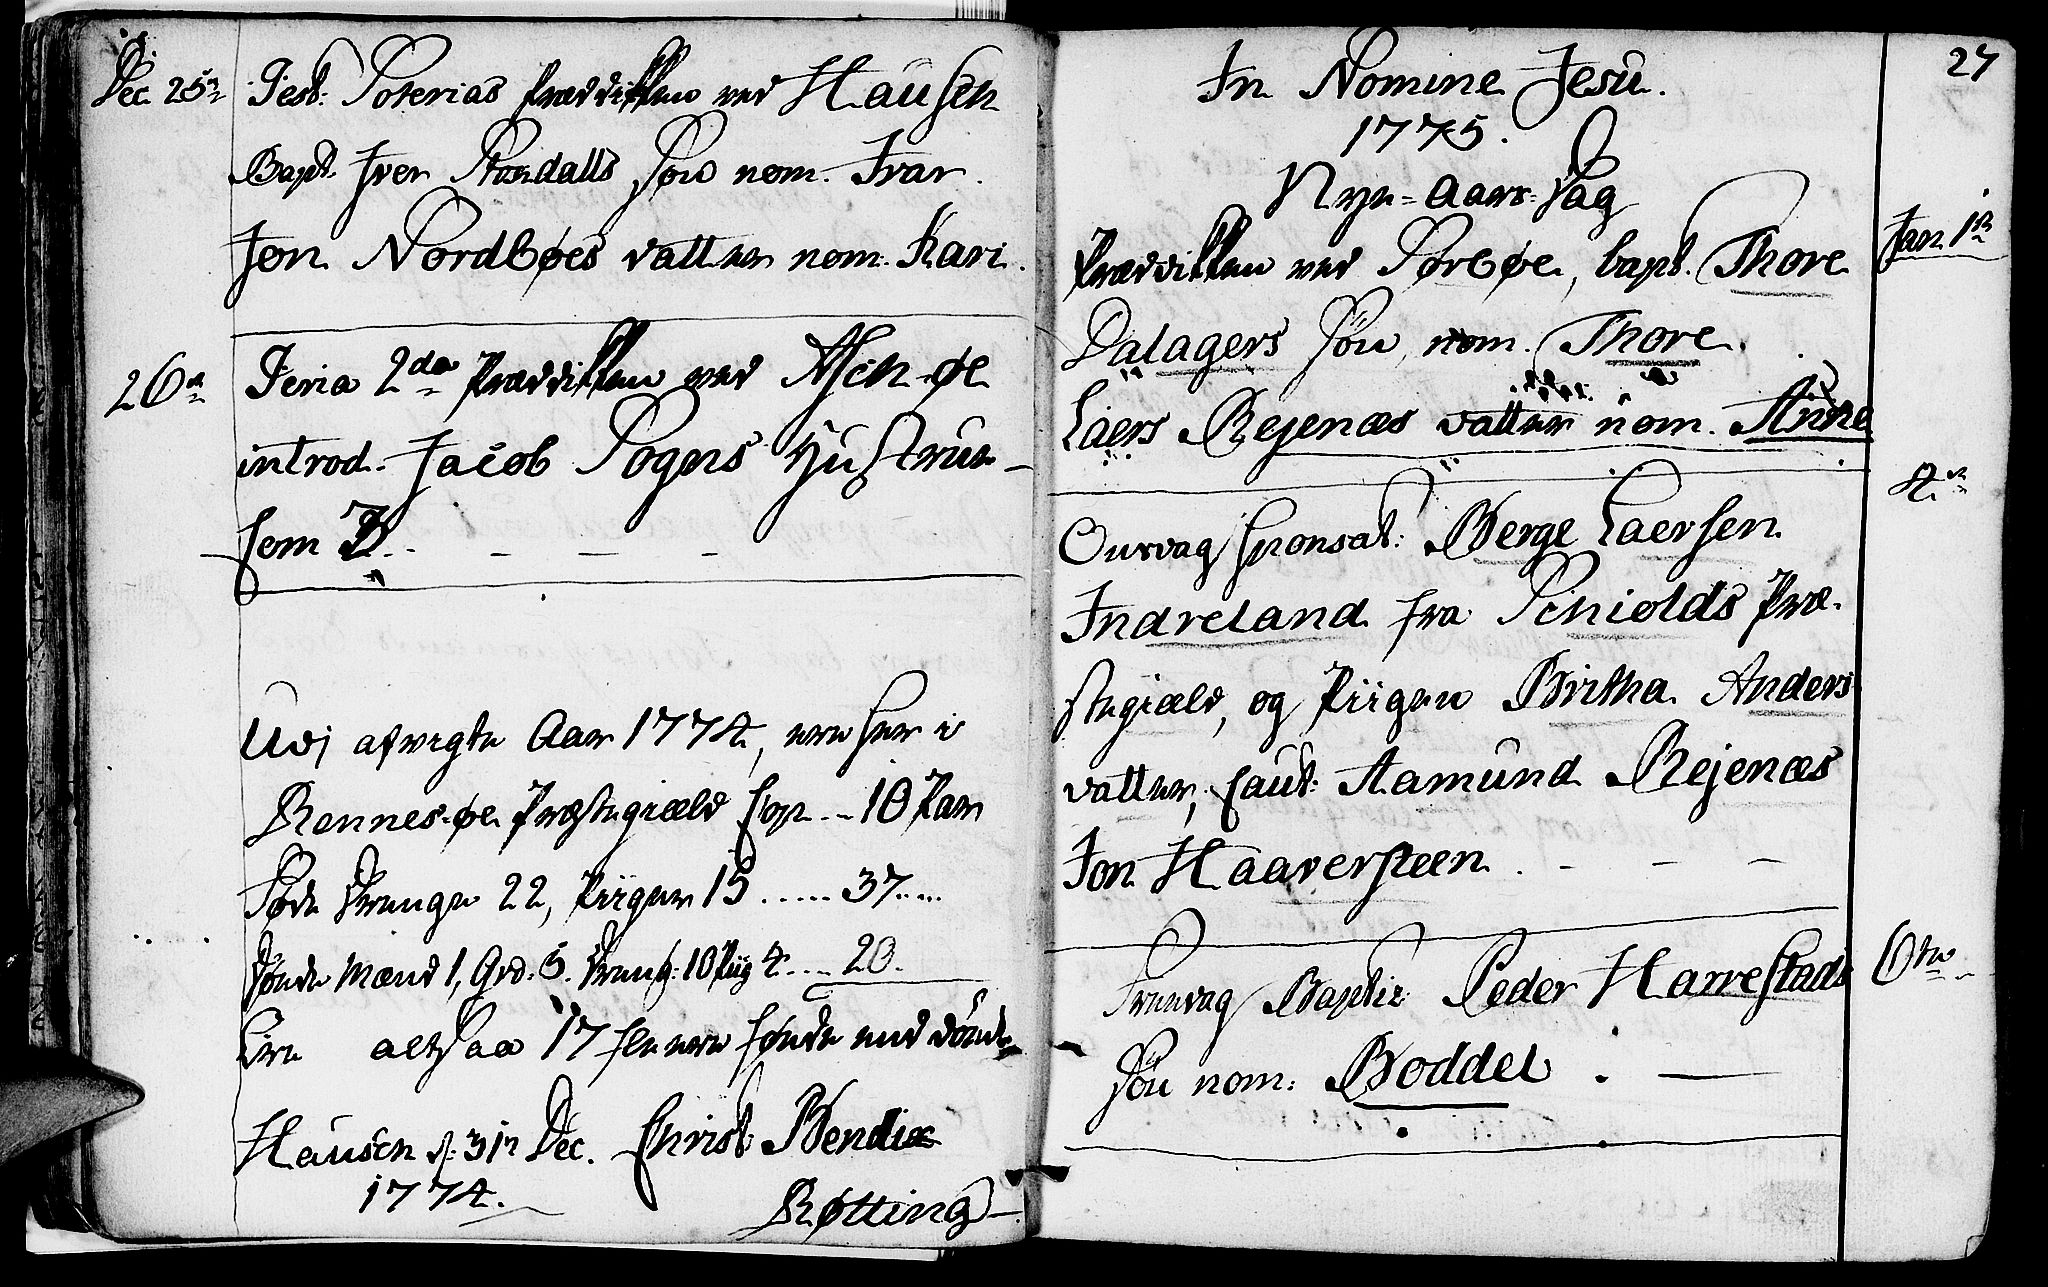 Dec. 25n Fest: Soterias Prædikken ved Hausken
Bapt. Iver Randalls Søn nom. Ivar.
Jon Nordbøes datter nom. Kari.
26n Feria 2da Prædikken ved Asch-øe
introd. Jacob Sogns Hustrue
som
Udj afvigte Aar 1774, ere her i
Rennes-øe Præstegiæld Cop. 10 Par
Føde Drenge 22, Piiger 15 ..... 37....
Døde Mænd 1, Qvd. 5. Dreng: 10 Piig 4 .... 20.
Ere altsaa 17 flere fødde end døde
Hausken d: 31n Dec. Christ. Bendix
1774. Røtting
27
In Nomine Jesu.
1775.
Nye-Aars-Dag
Jan. 1n
Prædikken ved Sørbøe, bapt. Thore
Dalagers Søn, nom. Thore.
Laers Rejenæs datter nom. Anne
4n
Onsdag sponsat: Berge Laersen
Indreland fra Schiolds Præ-
stegiæld, og Piigen Britha Anders
datter, Caut: Aamund Rejenæs
Jon Haaversteen.
6te
Fredag Baptiz: Peder Harrestads
Søn nom: Boddel.